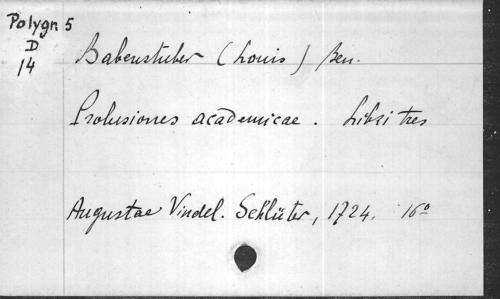 Polygr 5
D
14
Babenstuber (Louis) Ben.
Prolusiones academicae. Libri tres
Augustae Vindel. Schlüter, 1724. 16º